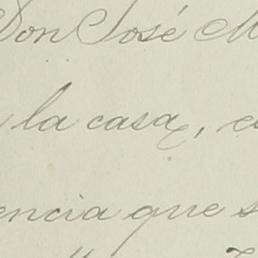 Don José M
la casa, c
encia que s